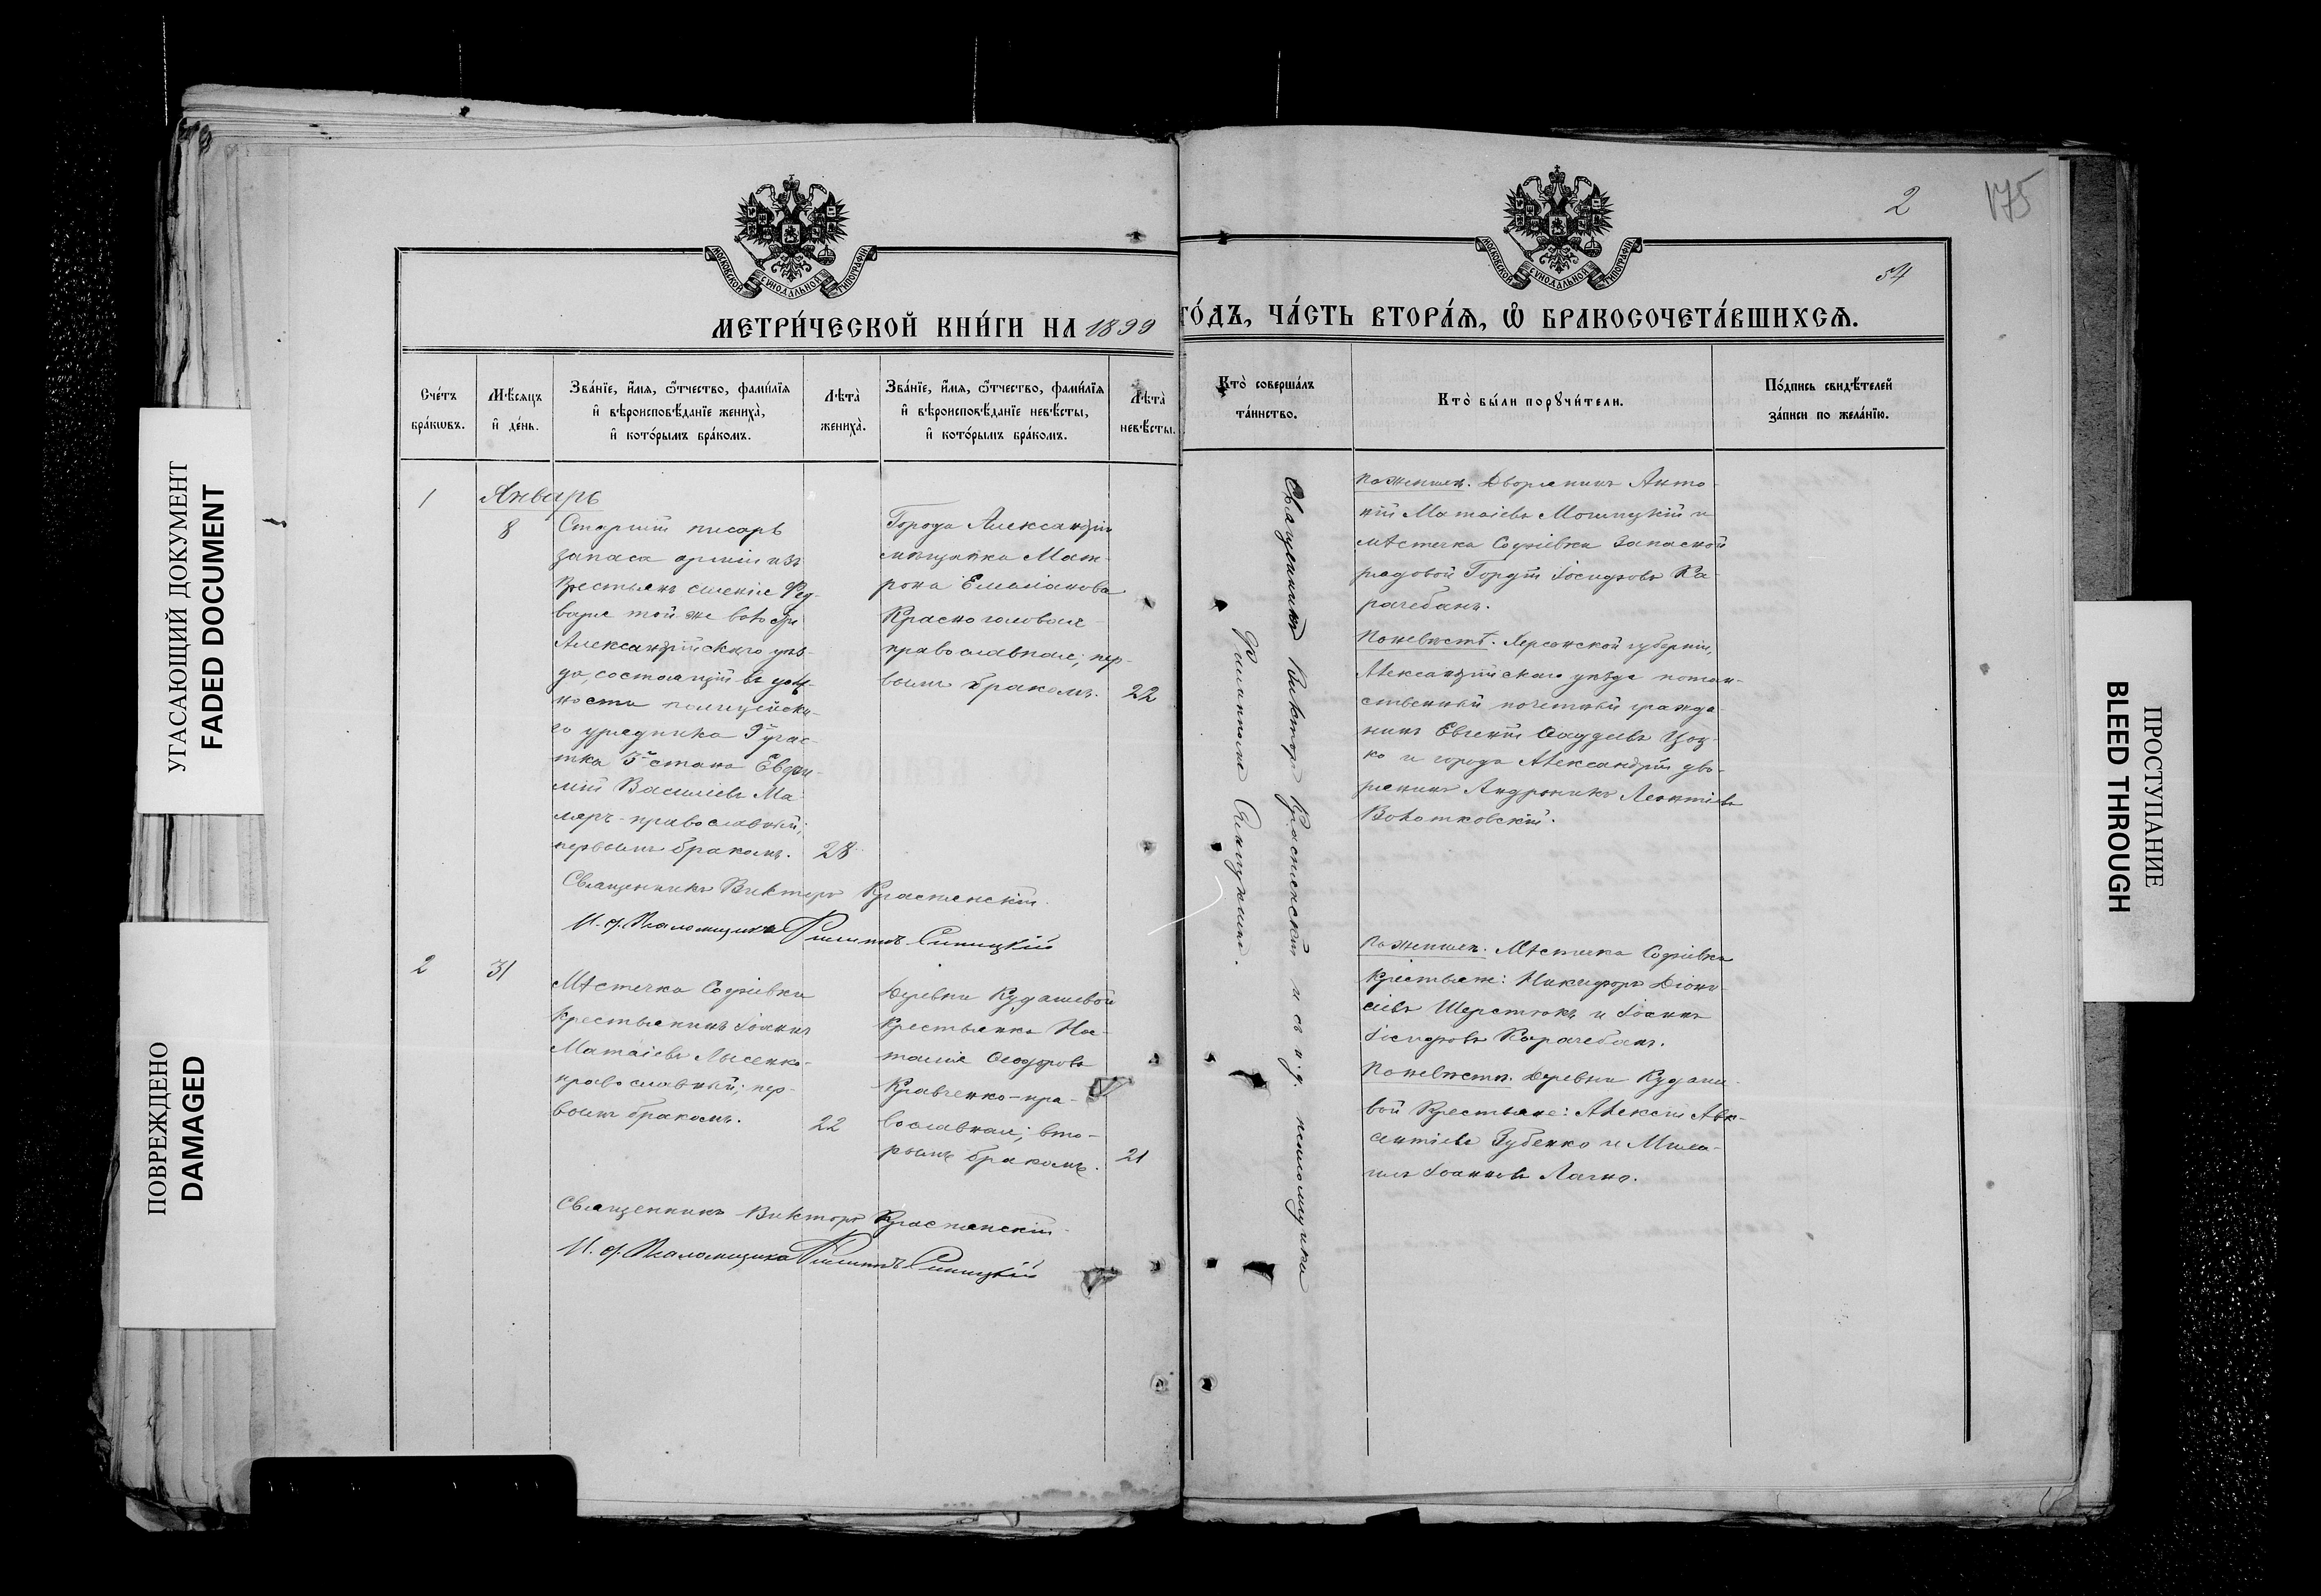 2
175
57
МОСКОВСКОЙ СѴНОДАЛЬНОЙ ТИПОГРАФІИ
МОСКОВСКОЙ СѴНОДАЛЬНОЙ ТИПОГРАФІИ
МЕТРИ́ЧЕСКОЙ КНИ́ГИ НА 1899
ГО́ДЪ, ЧА́СТЬ ВТОРА́Ѧ, Ѽ БРАКОСОЧЕТА́ВШИХСѦ.
Сче́тъ
бра́кѡвъ.
Мѣ́сѧцъ
и҆ де́нь.
Зва́нїе, и҆́мѧ, ѻ҆́тчество, фами́лїѧ
и҆ вѣроисповѣ́данїе жениха̀,
и҆ кото́рымъ бра́комъ.
Лѣта̀
жениха̀.
Зва́нїе, и҆́мѧ, ѻ҆́тчество, фами́лїѧ
и҆ вѣроисповѣ́данїе невѣ́сты,
и҆ кото́рымъ бра́комъ.
Лѣта̀
невѣ́сты.
Кто̀ соверша́лъ
та́инство.
Кто̀ бы́ли порꙋчи́тели.
По́дпись свидѣ́телей
за́писи по жела́нїю.
1
Январь
8
Старшій писарь
запаса арміи изъ
крестьянъ имѣнія Фед-
варя той же волости
Александрійскаго уѣз-
да, состоящій въ долж-
ности полицейска-
го урядника 7 учас-
тка 5 стана Евфи-
мій Василіевъ Ма-
ляръ - православный;
первымъ бракомъ.
28
Города Александріи
мѣщанка Мат-
рона Емиліанова
Красноголовая
православная, пер-
вымъ бракомъ.
22
Священникъ Викторъ Краснянскій и съ и. д. псаломщика
Филиппомъ Синицкимъ.
По женихѣ. Дворянинъ Анто-
ній Матѳіевъ Мошицкій и
мѣстечка Софіевки запасной
рядовой Гордій Іосифовъ Ка-
рачебанъ.
По невѣстѣ. Херсонской губерніи,
Александрійскаго уѣзда потом-
ственный почетный гражда-
нинъ Евгеній Ѳаддеевъ
ко и города Александріи дво-
рянинъ Андроникъ Леонтіевъ
Волотковскій.
Священникъ Викторъ Краснянскій.
И. д. Псаломщика Филиппъ Синицкій
2
31
Мѣстечка Софіевки
крестьянинъ Іоаннъ
Матѳіевъ Лысенко-
православный; пер-
вымъ бракомъ.
22
Деревни Кудашевой
крестьянка На-
талія Ѳеодорова
Кравченко - пра-
вославная; вто-
рымъ бракомъ.
21
По женихѣ. Мѣстечка Софіевки
крестьяне: Никифоръ Діони-
сіевъ Шерстюкъ и Іоаннъ
Іосифовъ Карачебанъ.
По невѣстѣ. Деревни Кудаше-
вой крестьяне: Алексій Авк-
сентіевъ Зубенко и Миха-
илъ Іоанновъ Лагно.
Священникъ Викторъ Краснянскій
И. д. Псаломщика Филиппъ Синицкій
УГАСАЮЩИЙ ДОКУМЕНТ
FADED DOCUMENT
ПОВРЕЖДЕНО
DAMAGED
ПРОСТУПАНИЕ
BLEED THROUGH